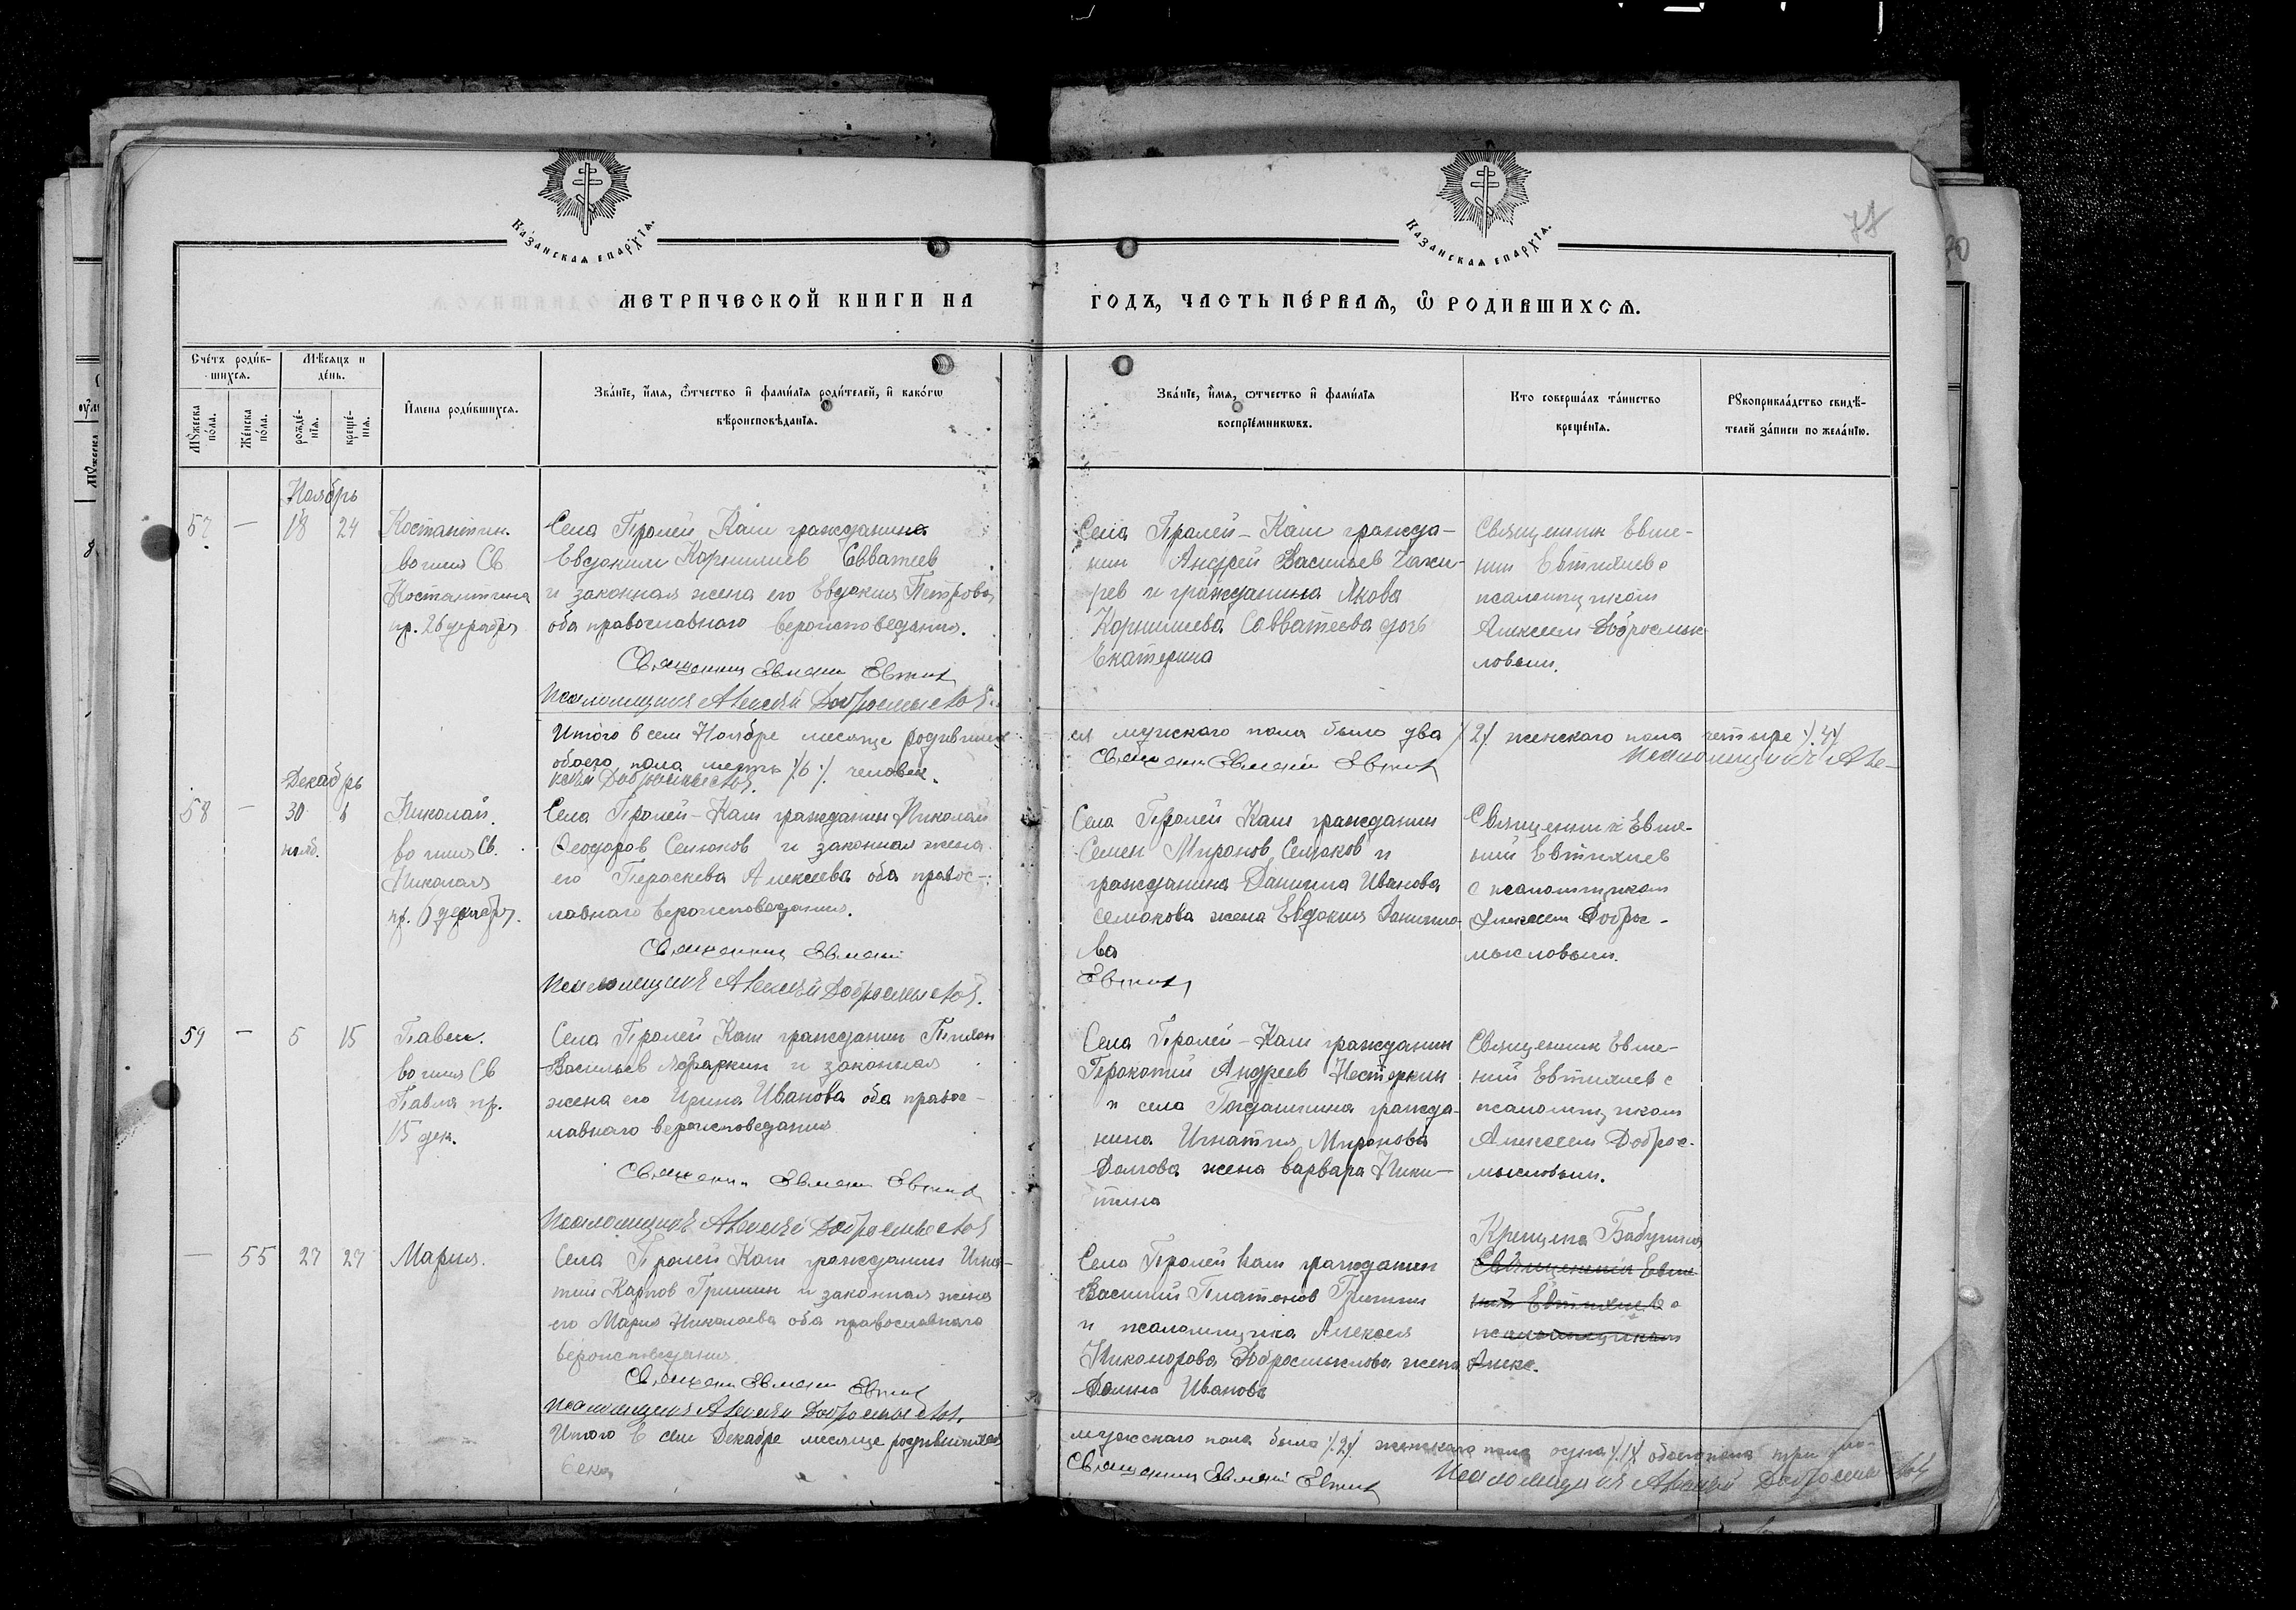 Казанская епархїя.
Казанская епархїя.
78
МЕТРИЧЕСКОЙ КНИГИ НА
ГОДЪ, ЧАСТЬ ПЕРВАЯ, Ѿ РОДИВШИХСЯ.
Счетъ родив-
шихся.
Мѣсяцъ и
день.
Мужеска
пола.
Женска
пола.
рожде-
нїя.
креще-
нїя.
Имена родившихся.
Званїе, имя, ѿтчество и фамилїя родителей, и какогѡ
вѣроисповѣданїя.
Званїе, имя, ѿтчество и фамилїя
воспрїемникѡвъ.
Кто совершалъ таинство
крещенїя.
Рукоприкладство свидѣ-
телей записи по желанїю.
Ноябрь
57 — 18 24
Костантин.
во имя Св
Костантина
пр. 26 декабря
Села Пролей Каши гражданина
Евдоким Корнилиев Савватеев
и законная жена его Евдокия Петрова,
оба православнаго вероисповедания.
Священник Евмений Евтих
Псаломщикъ Алексѣй Добросмыслов.
Села Пролей-Каши гражда-
нин Андрей Васильев
и гражданина Якова
Корнилиева Савватеева дочь
Екатерина
Священник Евме-
ний Евтихиев с
псаломщиком
Алексеем Добросмыс-
ловым.
Итого в сем Ноябре месяце родивших-
ся мужскаго пола было два /2/. женскаго пола четыре /.4/
обоего пола шесть /.6/. человек.
Священник Евмений Евтих
Псаломщикъ Але-
ксѣй Добросмыслов.
Декабрь
58 — 30 6
нояб.
Николай.
во имя Св.
Николая
пр. 6 декабря.
Села Пролей-Каши гражданин Николай
Феодоров Семоков и законная жена
его Пероскева Алексеева оба правос-
лавнаго вероисповедания.
Священник Евмений
Псаломщикъ Алексѣй Добросмыслов.
Села Пролей Каши гражданин
Семен Миронов Семоков и
гражданина Даниила Иванова
Семокова жена Евдокия Данило-
ва
Евтих
Священник Евме-
ний Евтихиев
с псаломщиком
Алексеем Доброс-
мысловым.
59 — 5 15
Павел.
во имя Св
Павла пр.
15 дек.
Села Пролей Каши гражданин
Васильев и законная
жена его Ирина Иванова оба правос-
лавнаго вероисповедания
Священник Евмений Евтих
Псаломщикъ Алексѣй Добросмыслов
Села Пролей-Каши гражданин
Прокопий Андреев Нестеркин
и села гражда-
нина Игнатия Миронова
жена Варвара Ники-
тина
Священник Евме-
ний Евтихиев с
псаломщиком
Алексеем Доброс-
мысловым.
— 55 27 27
Мария.
Села Пролей Каши гражданин Игна-
тий Карпов Гришин и законная жена
его Мария Николаева оба православнаго
вероисповедания.
Священник Евмений Евтих
Псаломщикъ Алексѣй Добросмыслов.
Село Пролей Каши гражданин
Василий Платонов Гришин
и псаломщика Алексея
Никонорова Добросмыслова жена
Иванова
Крещена Бабушкой
Священник Евме-
ний Евтихиев с
псаломщиком
Алекс.
Итого в сем Декабре месяце родившихся
мужскаго пола было /.2/. женскаго пола одна /.1/. обоего пола три чело-
века
Священник Евмений Евтих
Псаломщикъ Алексѣй Добросмыслов